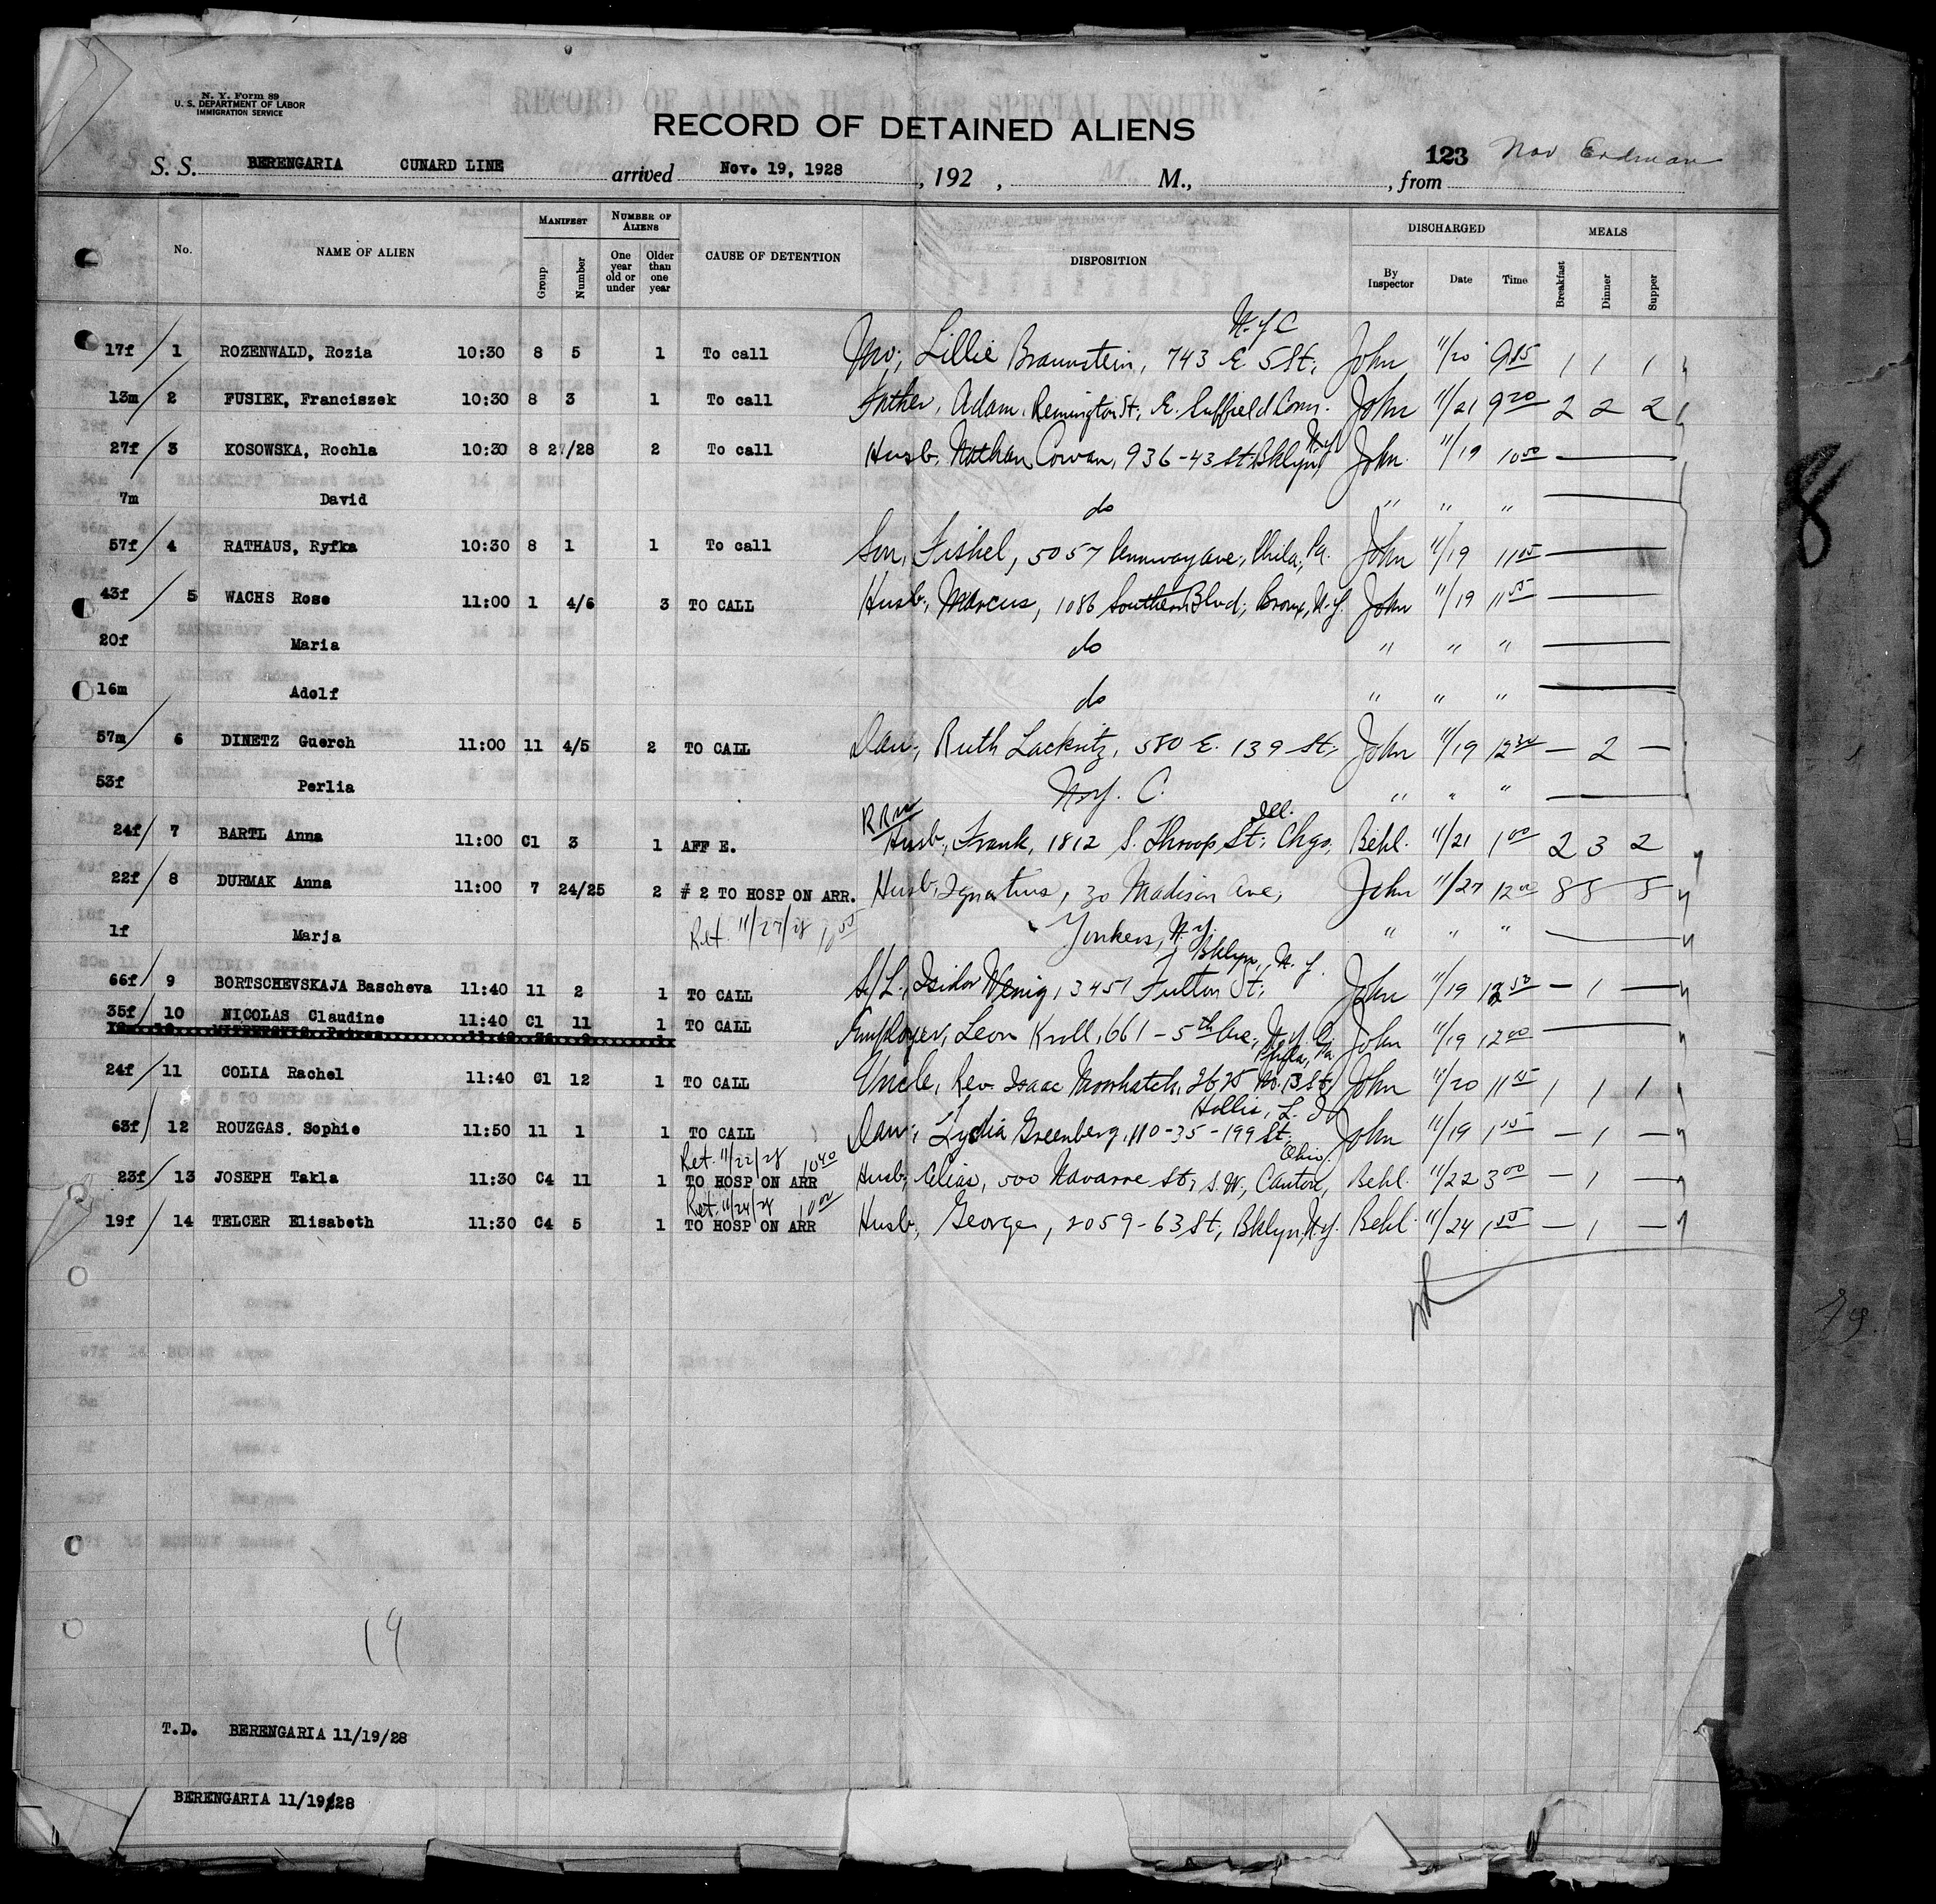 N. Y. Form 89
U. S. DEPARTMENT OF LABOR
IMMIGRATION SERVICE
RECORD OF ALIENS HELD FOR SPECIAL INQUIRY
RECORD OF DETAINED ALIENS
S. S. BERENGARIA CUNARD LINE arrived Nov. 19, 1928, 192 , M., , from 123 Nov Erdman
No. NAME OF ALIEN MANIFEST Group Number NUMBER OF ALIENS One year old or under Older than one year CAUSE OF DETENTION DISPOSITION DISCHARGED By Inspector Date Time MEALS Breakfast Dinner Supper
N.Y.C
17f 1 ROZENWALD, Rozia 10:30 8 5 1 To call Mo; Lillie Braunstein, 743 E 5 St, John 11/20 1 1 1
13m 2 FUSIEK, Franciszek 10:30 8 3 1 To call Father, Adam, Remington St, E. Suffield Conn. John 11/21 9 20 2 2 2
27f 3 KOSOWSKA, Rochla 10:30 8 27/28 2 To call Husb, Nathan Cowan, 936-43 St. Bklyn, N.Y. John 11/19 10 50 —
7m David do " " " —
57f 4 RATHAUS, Ryfka 10:30 8 1 1 To call Son, Fishel, 5057 ave, Phila, Pa. John 11/19 11 05 —
43f 5 WACHS Rose 11:00 1 4/6 3 TO CALL Husb, Marcus, 1086 Southern Blvd, Bronx, N.Y. John 11/19 11 55 —
20f Maria do " " " —
16m Adolf do " " " —
57m 6 DINETZ Guerch 11:00 11 4/5 2 TO CALL Dau, Ruth Lackritz, 580 E. 139 St, John 11/19 12 30 — 2 —
53f Perlia N.Y. C. " " " —
24f 7 BARTL Anna 11:00 C1 3 1 AFF E. Husb, Frank, 1812 S. Throop St, Chgo, Ill. Behl. 11/21 1 00 2 3 2
22f 8 DURMAK Anna 11:00 7 24/25 2 # 2 TO HOSP ON ARR. Husb, Ignatius, 30 Madison Ave, John 11/27 12 00 8 8 8
1f Marja Ret. 11/27/28 Yonkers, N.Y. " " " —
66f 9 BORTSCHEVSKAJA Bascheva 11:40 11 2 1 TO CALL S/L, Isidor Wenig, 3451 Fulton St, Bklyn, N.Y. John 11/19 12 50 — 1 —
35f 10 NICOLAS Claudine 11:40 C1 11 1 TO CALL Employer, Leon Kroll, 661-5th Ave, N.Y.C. John 11/19 12 00 —
24f 11 COLIA Rachel 11:40 C1 12 1 TO CALL Uncle, Rev. Isaac 2625 No. 13 St, Phila, Pa. John 11/20 1 1 1
63f 12 ROUZGAS, Sophie 11:50 11 1 1 TO CALL Dau, Lydia Greenberg, 110-35-199 St, Hollis, L. I. John 11/19 — 1 —
Ret. 11/22/28 10 40
23f 13 JOSEPH Takla 11:30 C4 11 1 TO HOSP ON ARR Husb, Elias, 500 Navarre St, S.W, Canton, Ohio. Behl. 11/22 3 00 — 1 —
Ret. 11/24/28 11 00
19f 14 TELCER Elisabeth 11:30 C4 5 1 TO HOSP ON ARR Husb, George, 2059-63 St, Bklyn, N.Y. Behl. 11/24 1 55 — 1 —
19
T.D. BERENGARIA 11/19/28
BERENGARIA 11/19/28
8